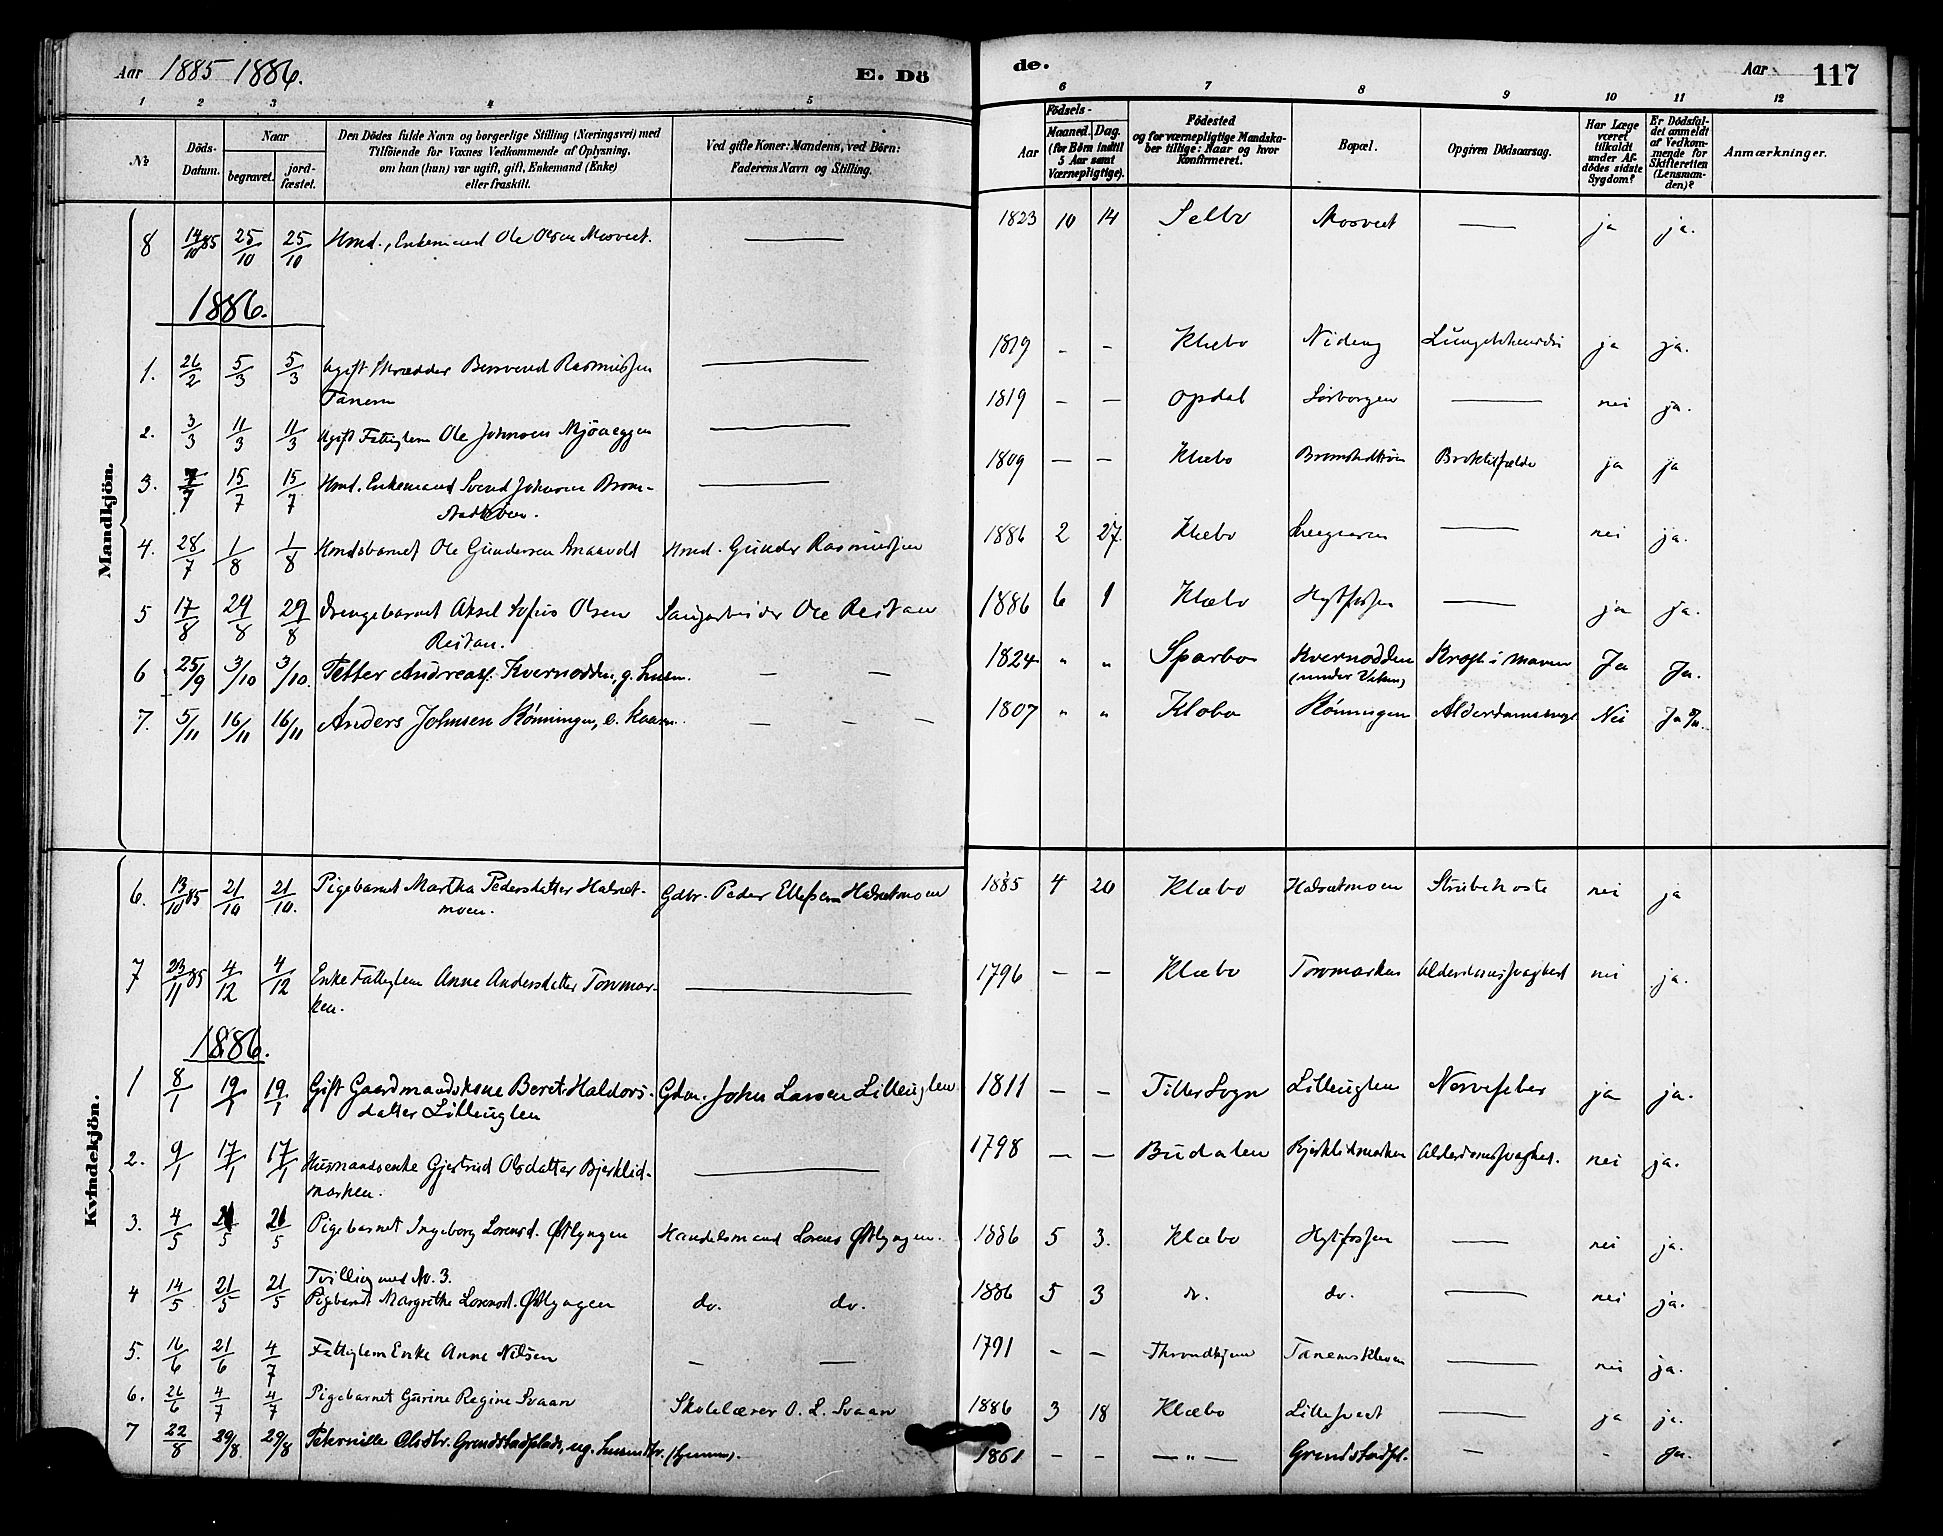 Aar 1885 1886. E. Dö de. Aar 117
1 2 3 4 5 6 7 8 9 10 11 12
No
Döds-Datum.
Naar
begravet.
jord-fæstet.
Den Dödes fulde Navn og borgerlige Stilling (Næringsvei) med
Tilföiende for Voxnes Vedkommende af Oplysning,
om han (hun) var ugift, gift, Enkemand (Enke)
eller fraskilt.
Ved gifte Koner: Mandens, ved Börn:
Faderens Navn og Stilling.
Födsels-
Aar
Maaned.
Dag.
(for Börn indtil
5 Aar samt
Værnepligtige).
Födested
og for værnepligtige Mandska-
ber tillige: Naar og hvor
Konfirmeret.
Bopæl.
Opgiven Dödsaarsag.
Har Læge
været
tilkaldt
under Af-
dödes sidste
Sygdom?
Er Dödsfal-
det anmeldt
af Vedkom-
mende for
Skifteretten
(Lensman-
den)?
Anmærkninger.
Mandkjön.
8 14/10 85 25/10 25/10 Hmd., Enkemand Ole Olsen Mosveet. — 1823 10 14 Selbo Mosveet — ja ja.
1886.
1. 26/2 5/3 5/3 Ugift Skrædder Rasmussen — 1819 - - Klæbo Nideng ja ja.
Tanem
2. 3/3 11/3 11/3 Ugift Fattiglem Ole Johnsen Mjöaeggen — 1819 - - Opdal Sörborgen — nei ja.
3. 7/7 15/7 15/7 Hmd. Enkemand Svend Johnsen Brom- — 1809 — — Klæbo ja ja
4. 28/7 1/8 1/8 Hmdsbarnet Ole Gundersen Hmd. Gunder Rasmussen 1886 2 27. Klæbo — nei ja.
5 17/8 29/8 29/8 Drengebarnet Aksel Sofus Olsen Ole Reitan 1886 6 1 Klæbo Hytfossen — ja ja.
Reitan.
6 25/9 3/10 3/10. Petter Andreass. Kvernodden, g. husm. — — 1824 " " Sparbo Kvernodden Kræft i Maven Ja Ja.
7. 5/11 16/11 16/11 Anders Johnsen Rönningen, e. — — — 1807 " " Klæbo Rönningen Nei Ja
Kvindekjön.
6. 13/10 85 21/10 21/10. Pigebarnet Martha Pedersdatter Halset- Gdbr. Peder Ellefsen Halsetmoen 1885 4 20 Klæbo Halsetmoen Strubehoste nei ja
moen.
7 23/11 85 4/12 4/12 Enke Fattiglem Anne Andersdatter Tonmar- — 1796 — — Klæbo Tonmarken Alderdomssvaghed nei ja.
ken.
1886.
1 8/1 19/1 19/1 Gift Gaardmandskone Beret Haldors- Gdm. John Larsen Lilleuglen 1811 — — Tiller Sogn Lilleuglen Nervefeber ja ja.
datter Lilleuglen
2. 9/1 17/1 17/1 Husmandsenke Gjertrud Olsdatter Bjerklid- — 1798 — — Budalen Bjerklidmarken Alderdomssvaghed. nei ja.
marken.
3. 4/5 21/5 21/5 Pigebarnet Ingeborg Lorensd. Østlyngen Handelsmand Lorens Østlyngen. 1886 5 3. Klæbo Hytfossen — nei ja.
Tvilling med No. 3.
4 14/5 21/5 21/5 Pigebarnet Margrethe Lorensd. Østlyngen do. do. 1886 5 3 do. do. — nei ja.
5. 16/6 21/6 4/7 Fattiglem Enke Anne Nilsen — — 1791 - - Throndhjem Tanemskleven — nei ja.
6. 26/6 4/7 4/7 Pigebarnet Gurine Regine Svaan Skolelærer O. L. Svaan 1886 3 18 Klæbo Lillesveet — ja ja.
7 22/8 29/8. 29/8 Peternille Olsdtr. Grendstadplads, ug. husmdtr. (hjemme). 1861 - - — " — Grendstadpl. — - Ja.